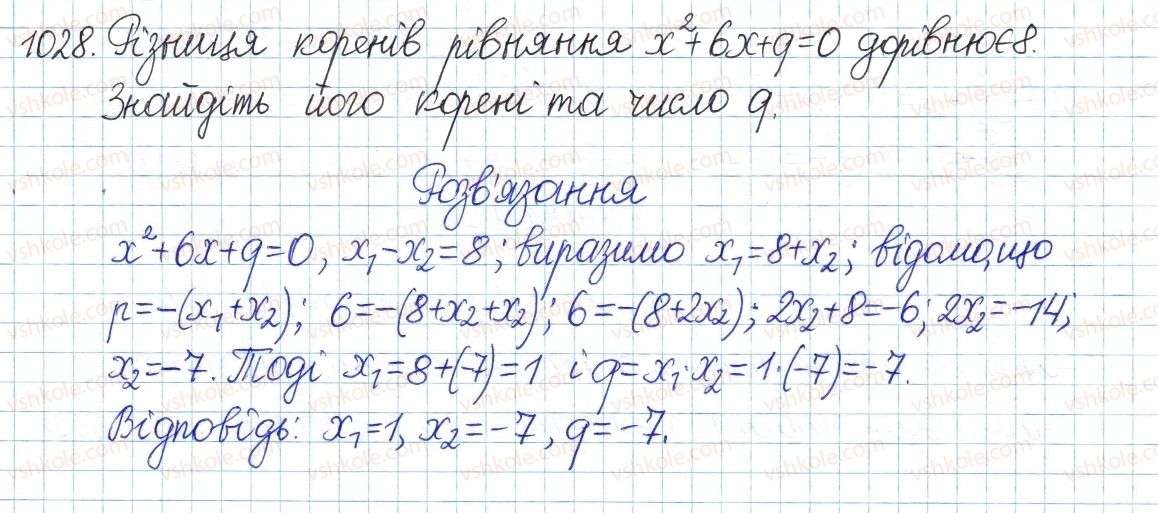 1028. Різниця коренів рівняння x²+6x+q=0 дорівнює 8.
Знайдіть його корені та число q.
Розв'язання
x²+6x+q=0, x₁-x₂=8; виразимо x₁=8+x₂; відомо, що
p=-(x₁+x₂); 6=-(8+x₂+x₂); 6=-(8+2x₂); 2x₂+8=-6; 2x₂=-14;
x₂=-7. Тоді x₁=8+(-7)=1 і q=x₁·x₂=1·(-7)=-7.
Відповідь: x₁=1, x₂=-7, q=-7.